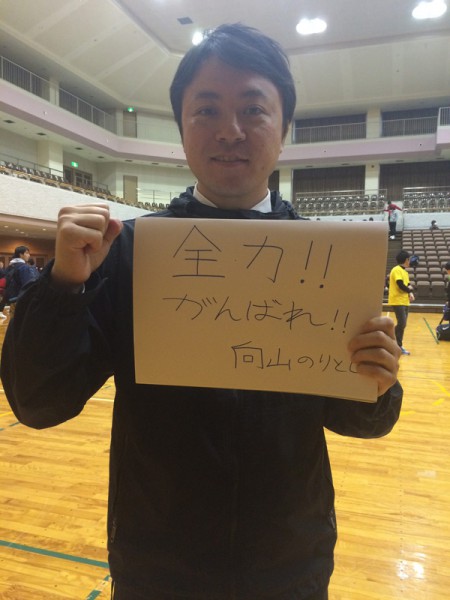 全力!!
がんばれ!!
向山のりとし